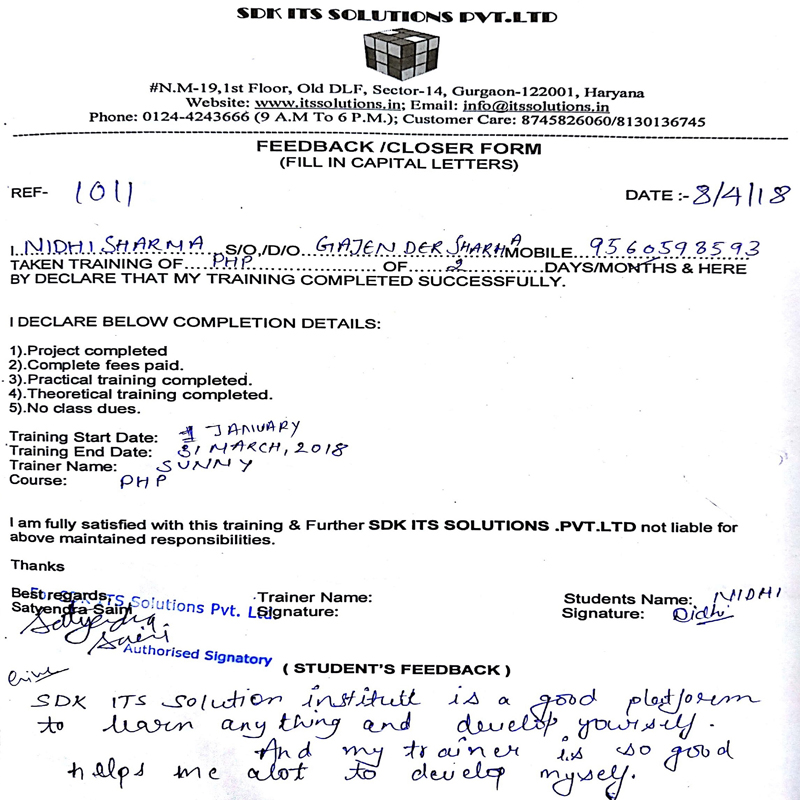 SDK ITS SOLUTIONS PVT.LTD
#N.M-19,1st Floor, Old DLF, Sector-14, Gurgaon-122001, Haryana
Website: www.itssolutions.in; Email: info@itssolutions.in
Phone: 0124-4243666 (9 A.M To 6 P.M.); Customer Care: 8745826060/8130136745
FEEDBACK /CLOSER FORM
(FILL IN CAPITAL LETTERS)
REF- 1011 DATE :- 8/4/18
I..NIDHI SHARMA...S/O,/D/O...GAJENDER SHARMA MOBILE...9560598593
TAKEN TRAINING OF....PHP........................ OF.......2............DAYS/MONTHS & HERE
BY DECLARE THAT MY TRAINING COMPLETED SUCCESSFULLY.
I DECLARE BELOW COMPLETION DETAILS:
1).Project completed
2).Complete fees paid.
3).Practical training completed.
4).Theoretical training completed.
5).No class dues.
Training Start Date: 1 JANUARY
Training End Date: 31 MARCH, 2018
Trainer Name: SUNNY
Course: PHP
I am fully satisfied with this training & Further SDK ITS SOLUTIONS .PVT.LTD not liable for
above maintained responsibilities.
Thanks
Best regards, Trainer Name: Students Name: NIDHI
For SDK ITS Solutions Pvt. Ltd
Satyendra Saini Signature: Signature: Nidhi
Satyendra
Saini
Authorised Signatory
( STUDENT'S FEEDBACK )
SDK ITS Solution institutt is a good platform
to learn any thing and develop yourself.
And my trainer is so good
helps me alot to develop myself.